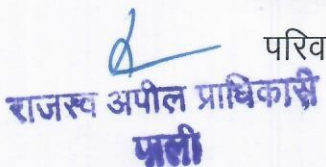 परिव
राजस्व अपील प्राधिकारी
पाली